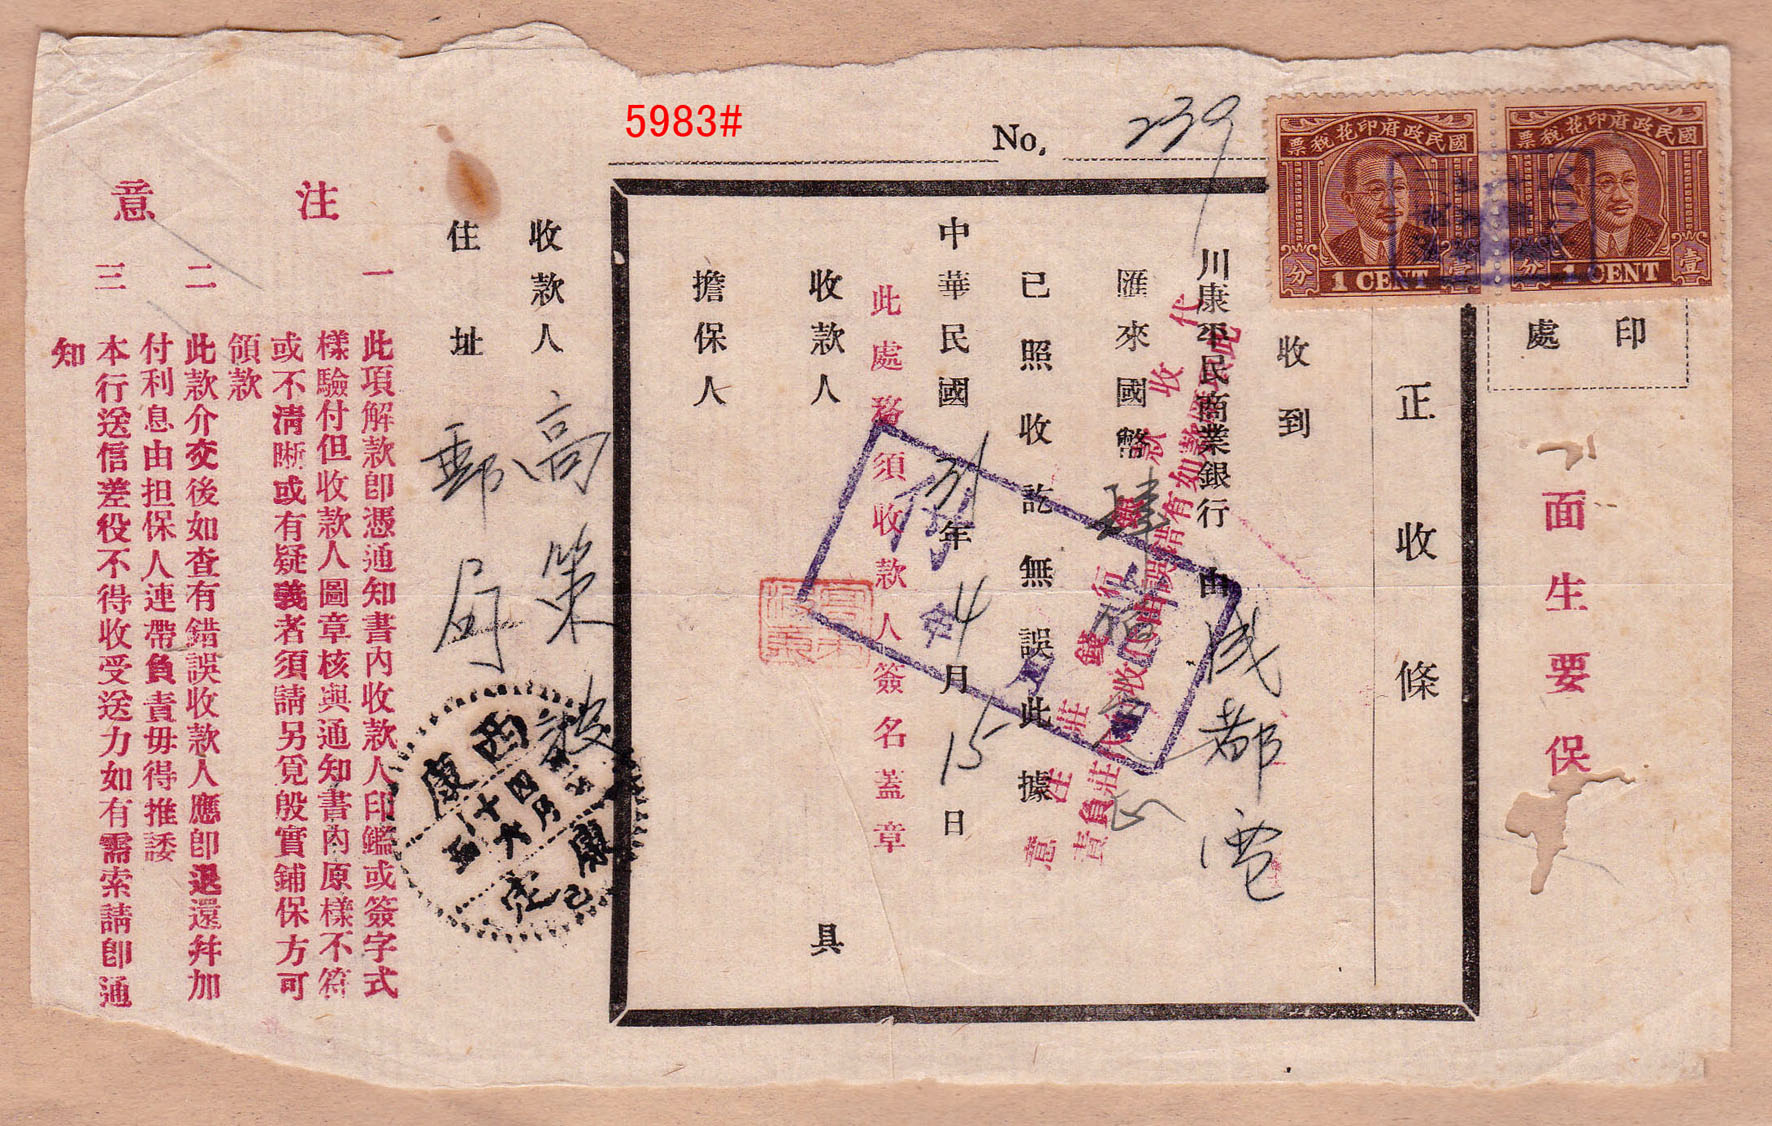 5983#
No. 239
國民政府印花稅票
1 CENT
壹分
國民政府印花稅票
1 CENT
壹分
印處
面生要保
正收條
收到
川康平民商業銀行由成都電
匯來國幣肆佰
已照收訖無誤此據
中華民國31年4月15日
此處務須收款人簽名蓋章
收款人 具
擔保人
代收款銀行錢莊注意
收款人高策
住址郵局
西康
康定
四月十六
注意
一 此項解款卽憑通知書內收款人印鑑或簽字式
樣驗付但收款人圖章核與通知書內原樣不符
或不清晰或有疑義者須請另覓殷實鋪保方可
領款
二 此款介交後如查有錯誤收款人應卽退還幷加
付利息由担保人連帶負責毋得推諉
三 本行送信差役不得收受送力如有需索請卽通
知